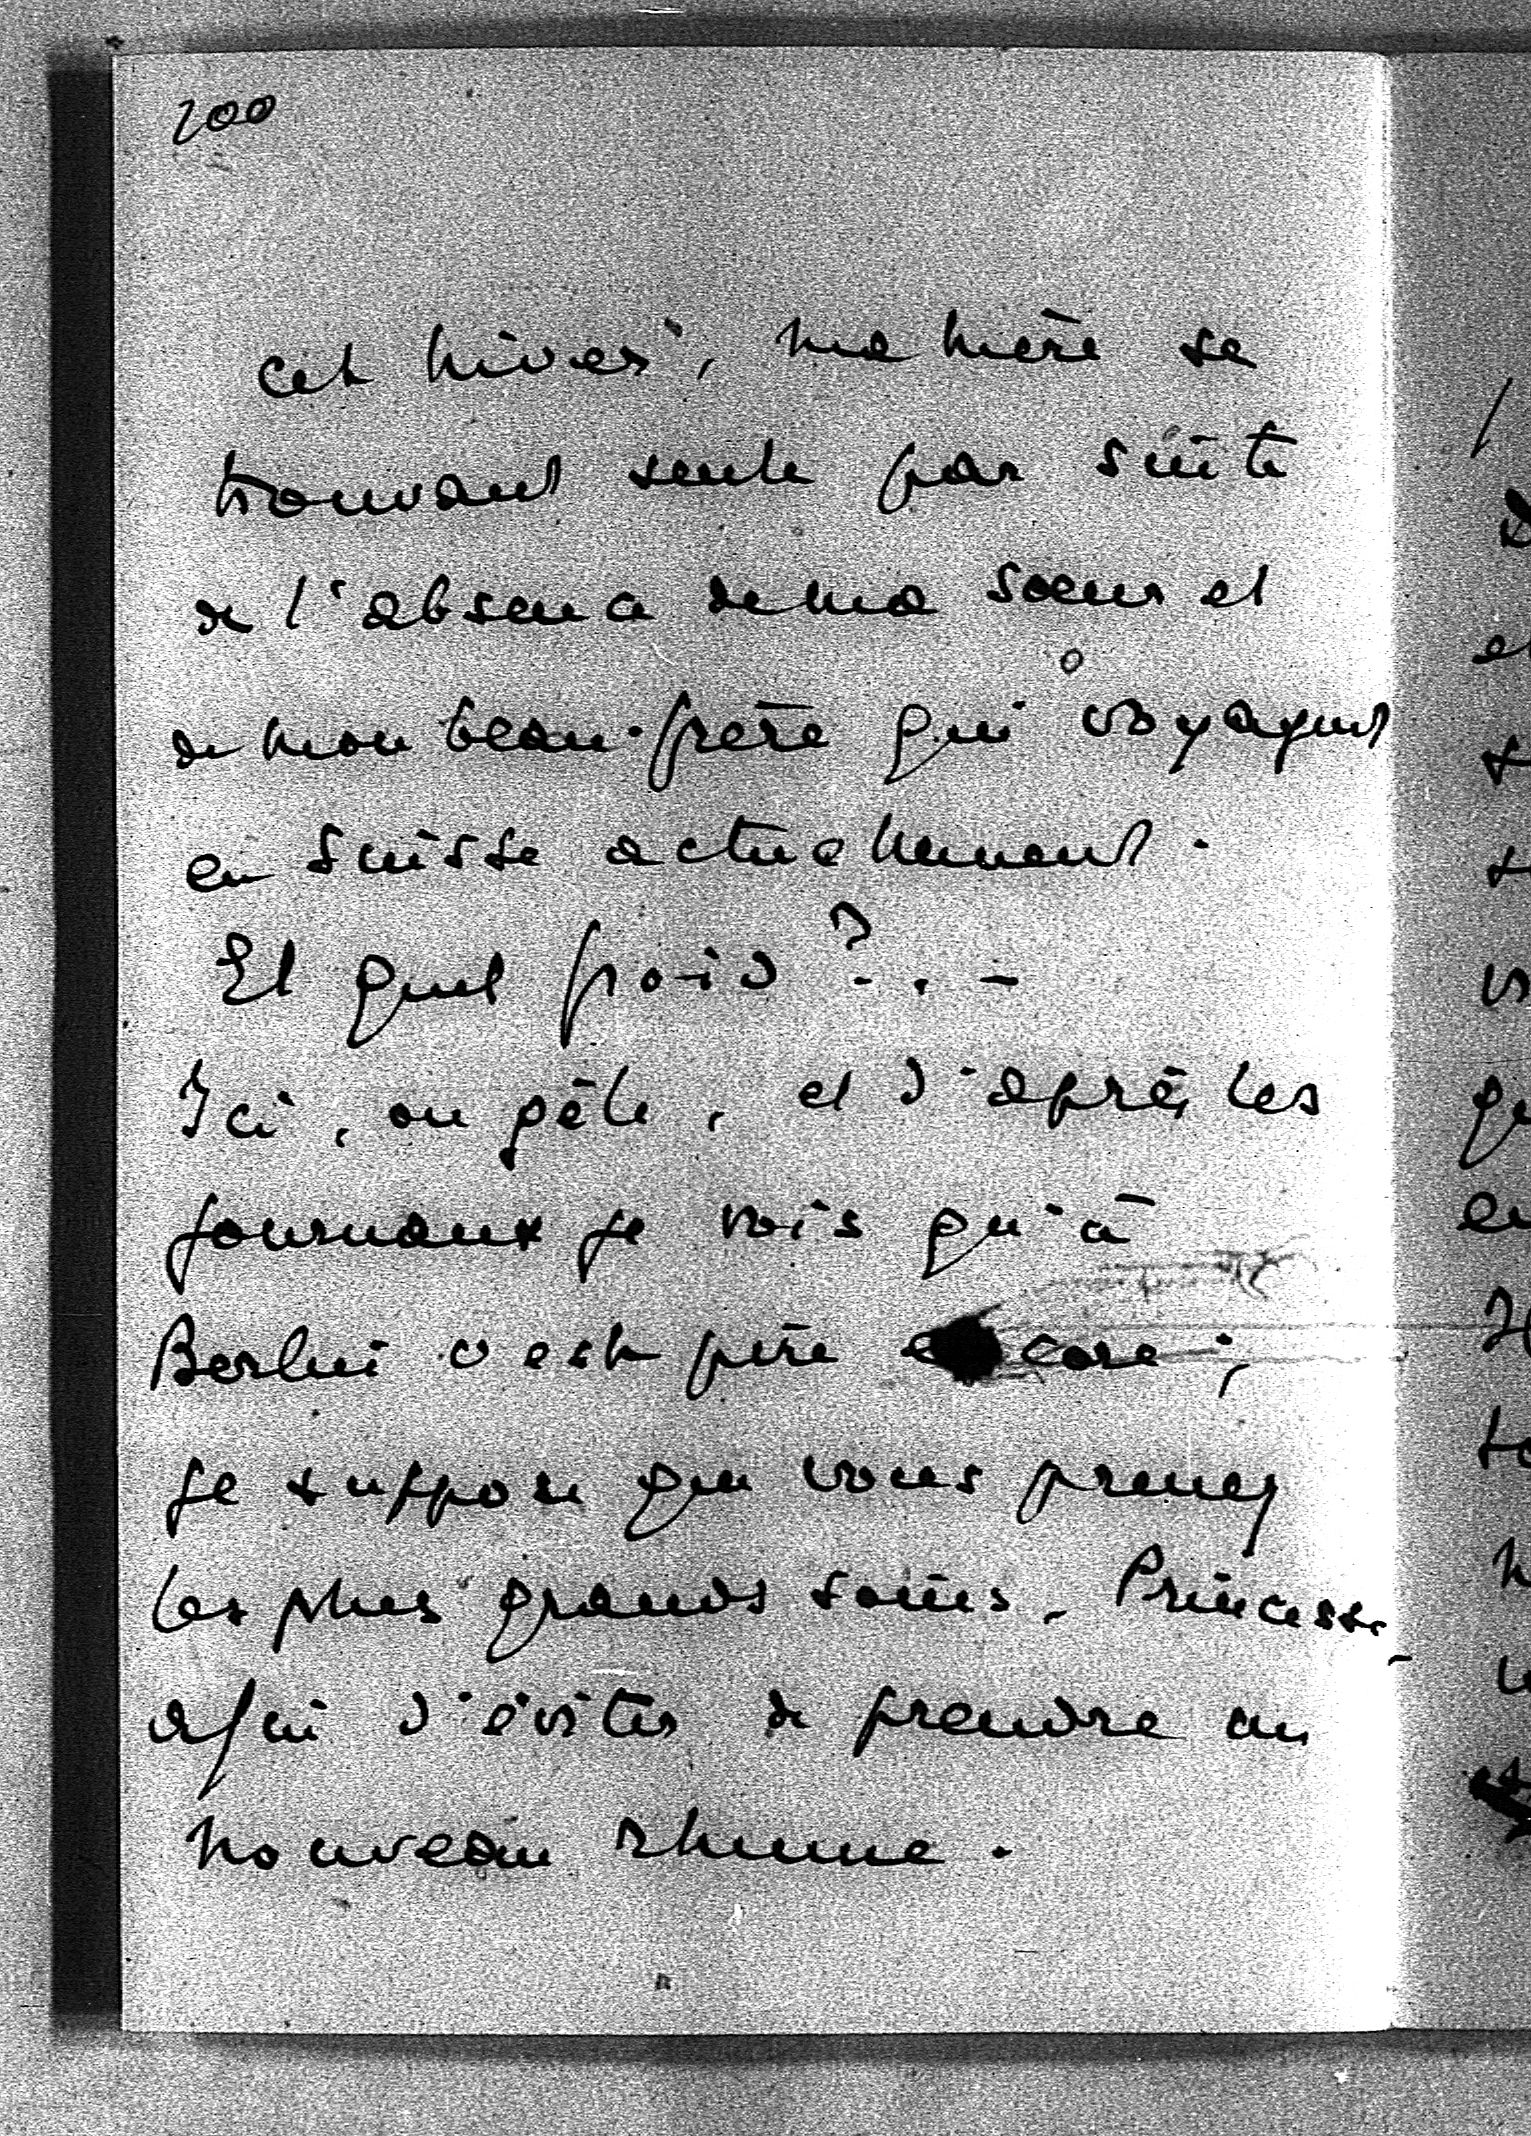 200
cet hiver, ma mère se
trouvant seule par suite
de l'absence de ma soeur et
de mon beau-frère qui voyagent
en Suisse actuellement.
Et quel froid ?..-
Ici, on gèle, et d'après les
journaux je vois qu'à
Berlin c'est pire encore ;
je suppose que vous prenez
les plus grands soins, Princesse,
afin d'éviter de prendre un
nouveau rhume.